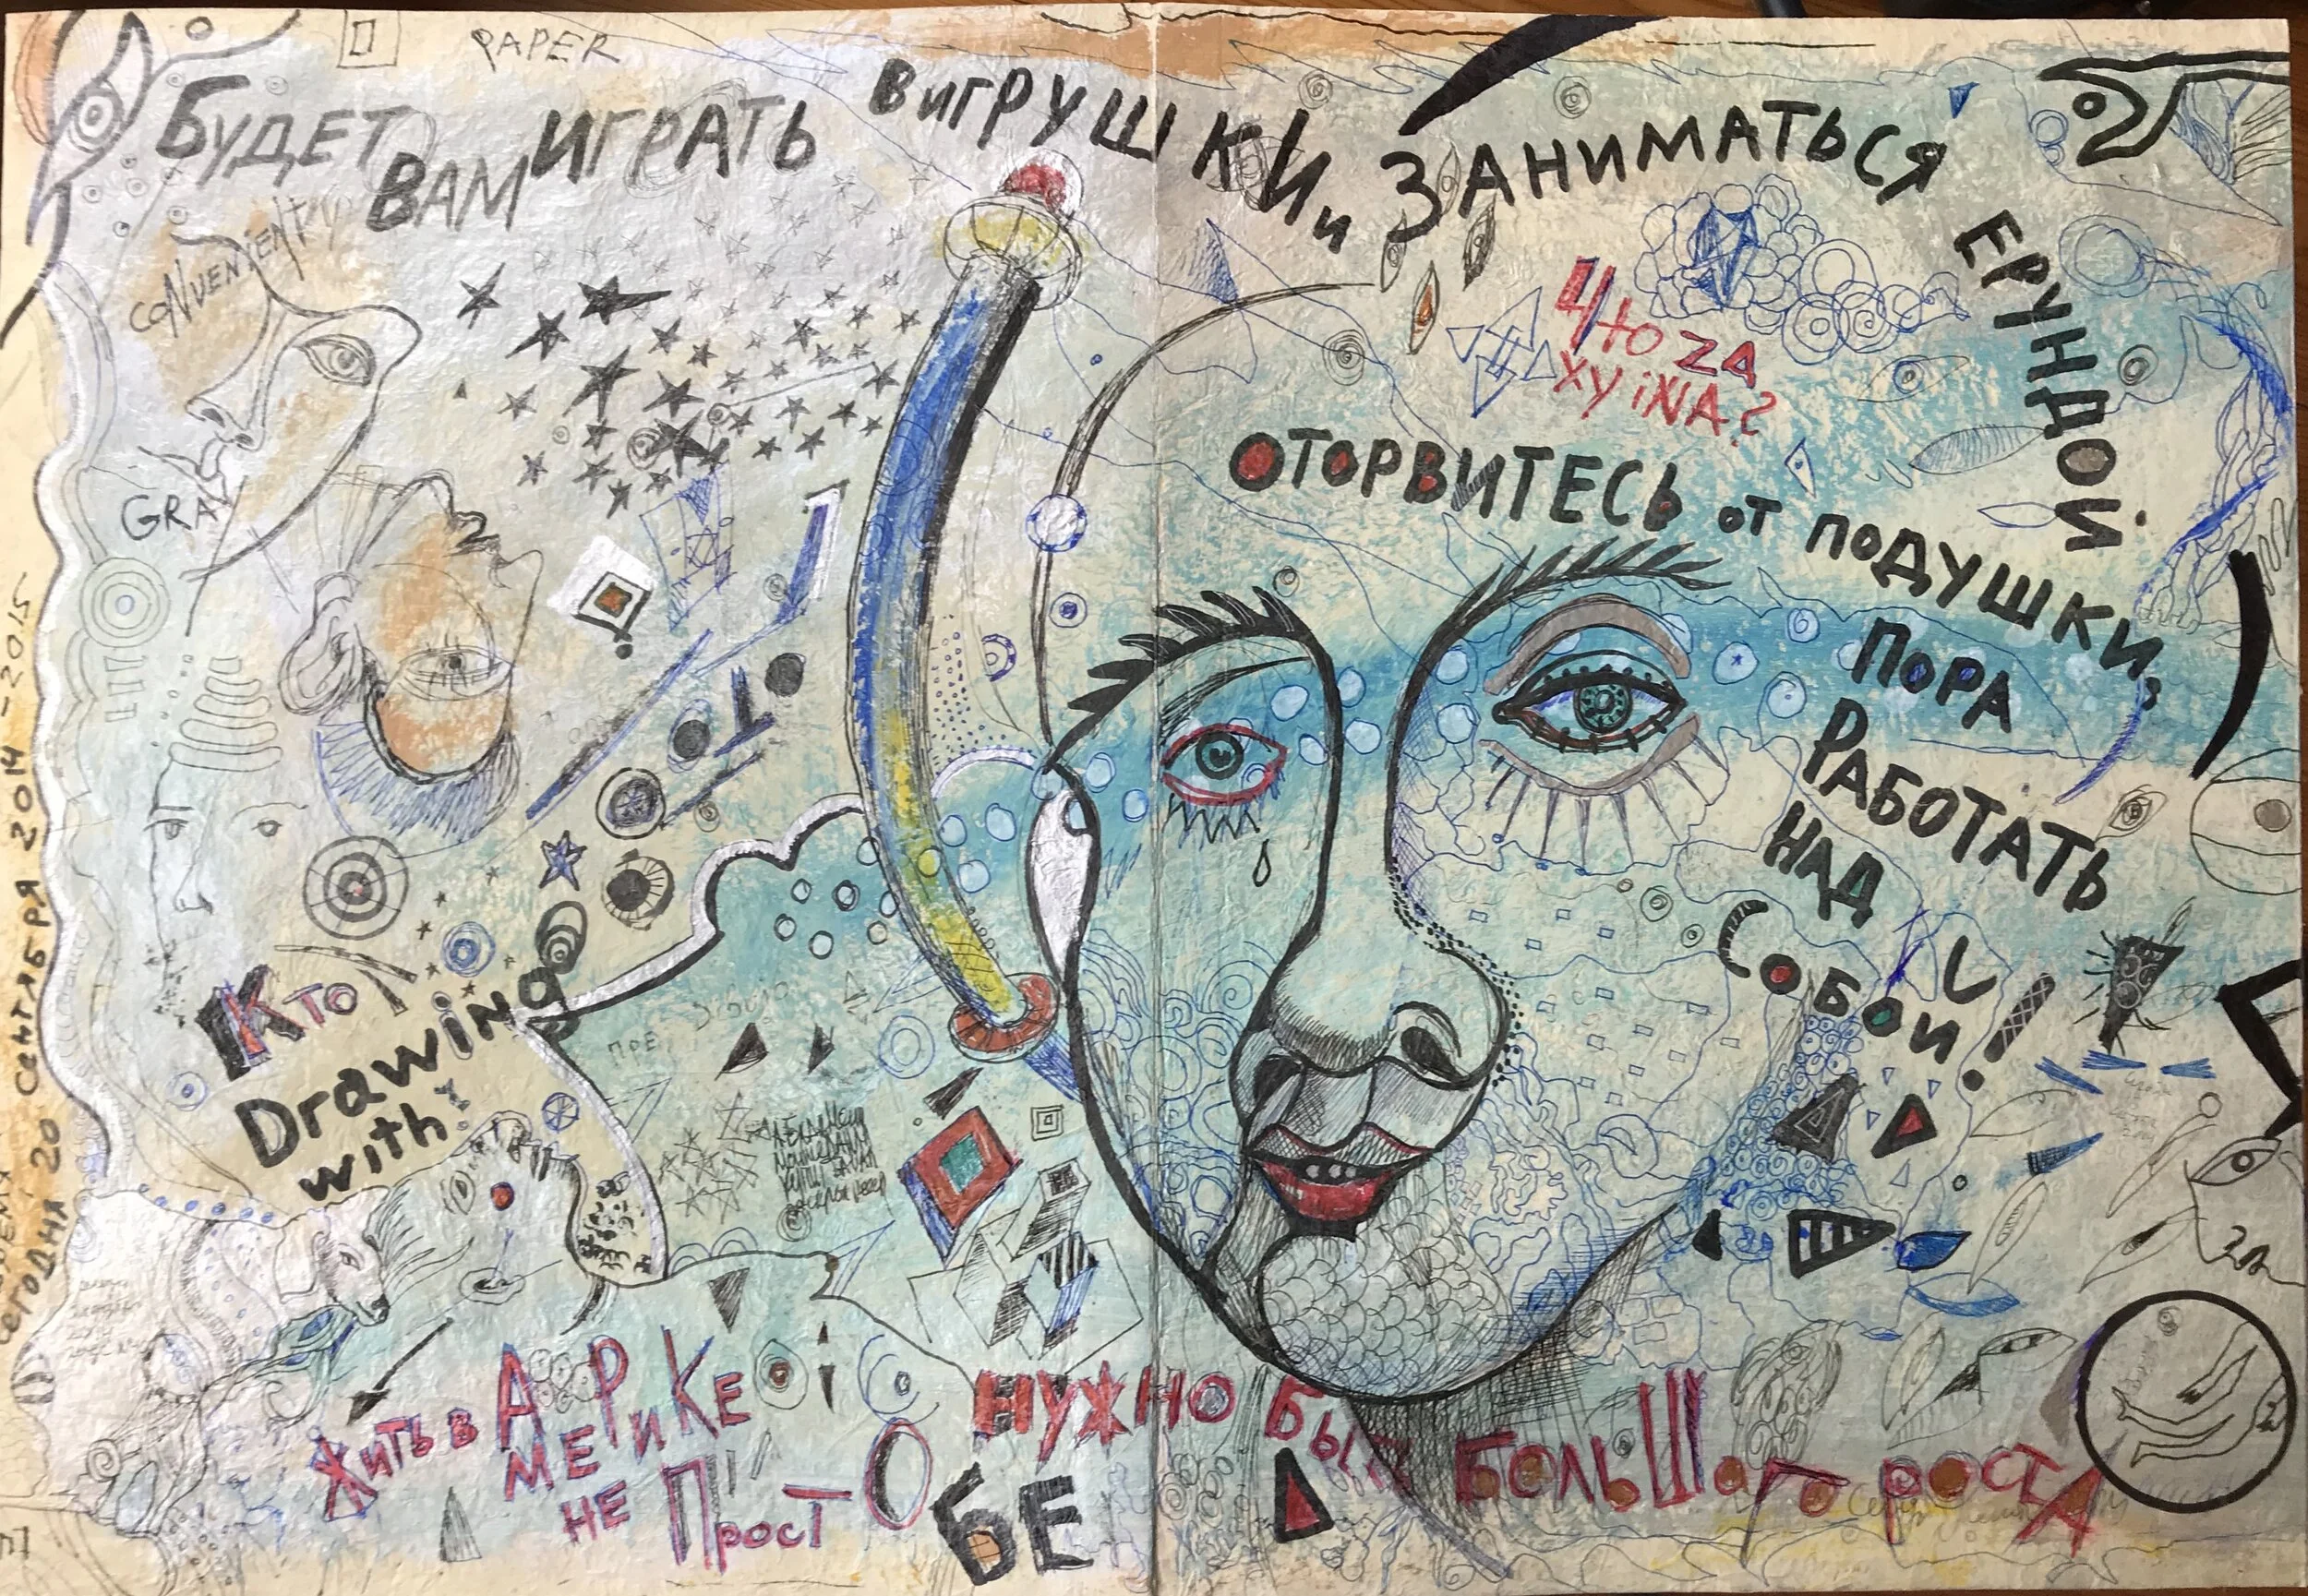 PAPER
БУДЕТ ВАМ ИГРАТЬ В ИГРУШКИ и ЗАНИМАТЬСЯ ЕРУНДОЙ
CONVENIENT
GRA
Что ZA
ХУiNA?
ОТОРВИТЕСЬ ОТ ПОДУШКИ,
ПОРА
РАБОТАТЬ
НАД
СОБОЙ!
Кто
Drawing
with
ПРЕ
СЕГОДНЯ 20 СЕНТЯБРЯ 2014-2015
ЖИТЬ В АМЕРИКЕ
НЕ ПРОСТО
НУЖНО БЫТЬ БОЛЬШОГО РОСТА
БЕ